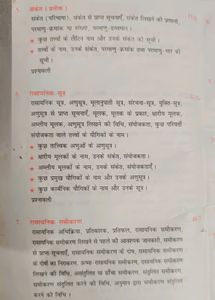 संकेत (प्रतीक)
संकेत (परिभाषा) संकेत से प्राप्त सूचनाएँ, संकेत लिखने की प्रणाली,
परमाणु-क्रमांक या संख्या, परमाणु-द्रव्यमान।
● कुछ तत्त्वों के लैटिन नाम और उनके संकेत की सूची।
● तत्त्वों के नाम, उनके संकेत, परमाणु-क्रमांक तथा परमाणु-भार की
सूची।
प्रश्नावली
रासायनिक सूत्र
रासायनिक सूत्र, अणुसूत्र, मूलानुपाती सूत्र, संरचना-सूत्र, युक्ति-सूत्र,
अणुसूत्र से प्राप्त सूचनाएँ, मूलक, मूलक के प्रकार, क्षारीय मूलक,
अम्लीय मूलक, अणुसूत्र लिखने की विधि, संयोजकता, कुछ परिवर्ती
संयोजकता वाले तत्त्वों के यौगिकों के नाम।
● कुछ तात्त्विक अणुओं के अणुसूत्र।
● क्षारीय मूलकों के नाम, उनके संकेत, संयोजकता।
● अम्लीय मूलकों के नाम, उनके संकेत, संयोजकता।
● कुछ प्रमुख यौगिकों के नाम और उनके अणुसूत्र।
● कुछ कार्बनिक यौगिकों के नाम और उनके सूत्र।
प्रश्नावली
रासायनिक समीकरण
रासायनिक अभिक्रिया, प्रतिकारक, प्रतिफल, रासायनिक समीकरण,
रासायनिक समीकरण लिखने से पहले की आवश्यक जानकारी, समीकरण
से प्राप्त-सूचनाएँ, रासायनिक समीकरण के दोष, रासायनिक समीकरण
के दोषों का निराकरण, ऊष्मा-रासायनिक समीकरण, रासायनिक समीकरण
लिखने की विधि, असंतुलित या ढाँचा समीकरण, संतुलित समीकरण,
समीकरण संतुलित करने की विधि, अनुमान द्वारा समीकरण संतुलित
करने की विधि।